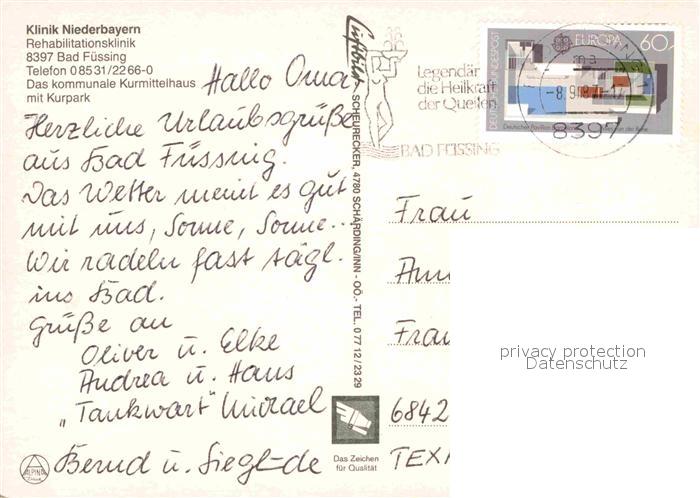 Klinik Niederbayern
Rehabilitationsklinik
8397 Bad Füssing
Telefon 08531/2266-0
Das kommunale Kurmittelhaus
mit Kurpark
Hallo Oma,
Herzliche Urlaubsgrüße
aus Bad Füssing.
Das Wetter meint es gut
mit uns, Sonne, Sonne...
Wir radeln fast tägl.
ins Bad.
Grüße an
Oliver u. Elke
Andrea u. Hans
„Tankwart" Michael
Bernd u. Sieglinde
ALPINA
Luftbild SCHEURECKER, 4780 SCHÄRDING/INN - OÖ.- TEL. 0 77 12 / 23 29
Das Zeichen
für Qualität
Legendär
die Heilkraft
der Quellen
BAD FÜSSING
-8.9
8397
DEUTSCHE BUNDESPOST
EUROPA
60
Deutscher Pavillon
Frau
Frau
6842
privacy protection
Datenschutz